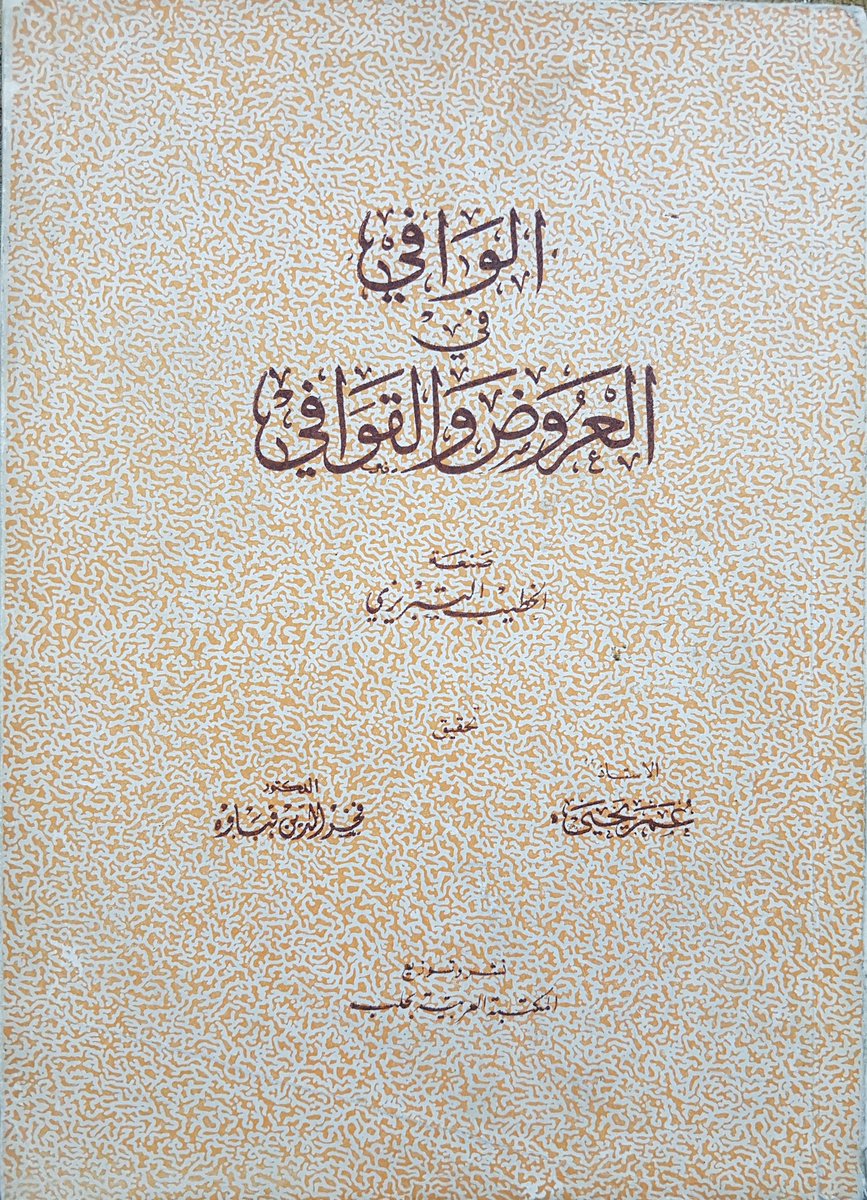 الوَافي
في
العَرُوض وَالقوَافي
صَنعَة
الخطيب التبريزي
تحقيق
الاستاذ
عُمَر يَحيَى
الدكتور
فخر الدين قباوه
نشر وتوزيع
المكتبة العربية بحلب